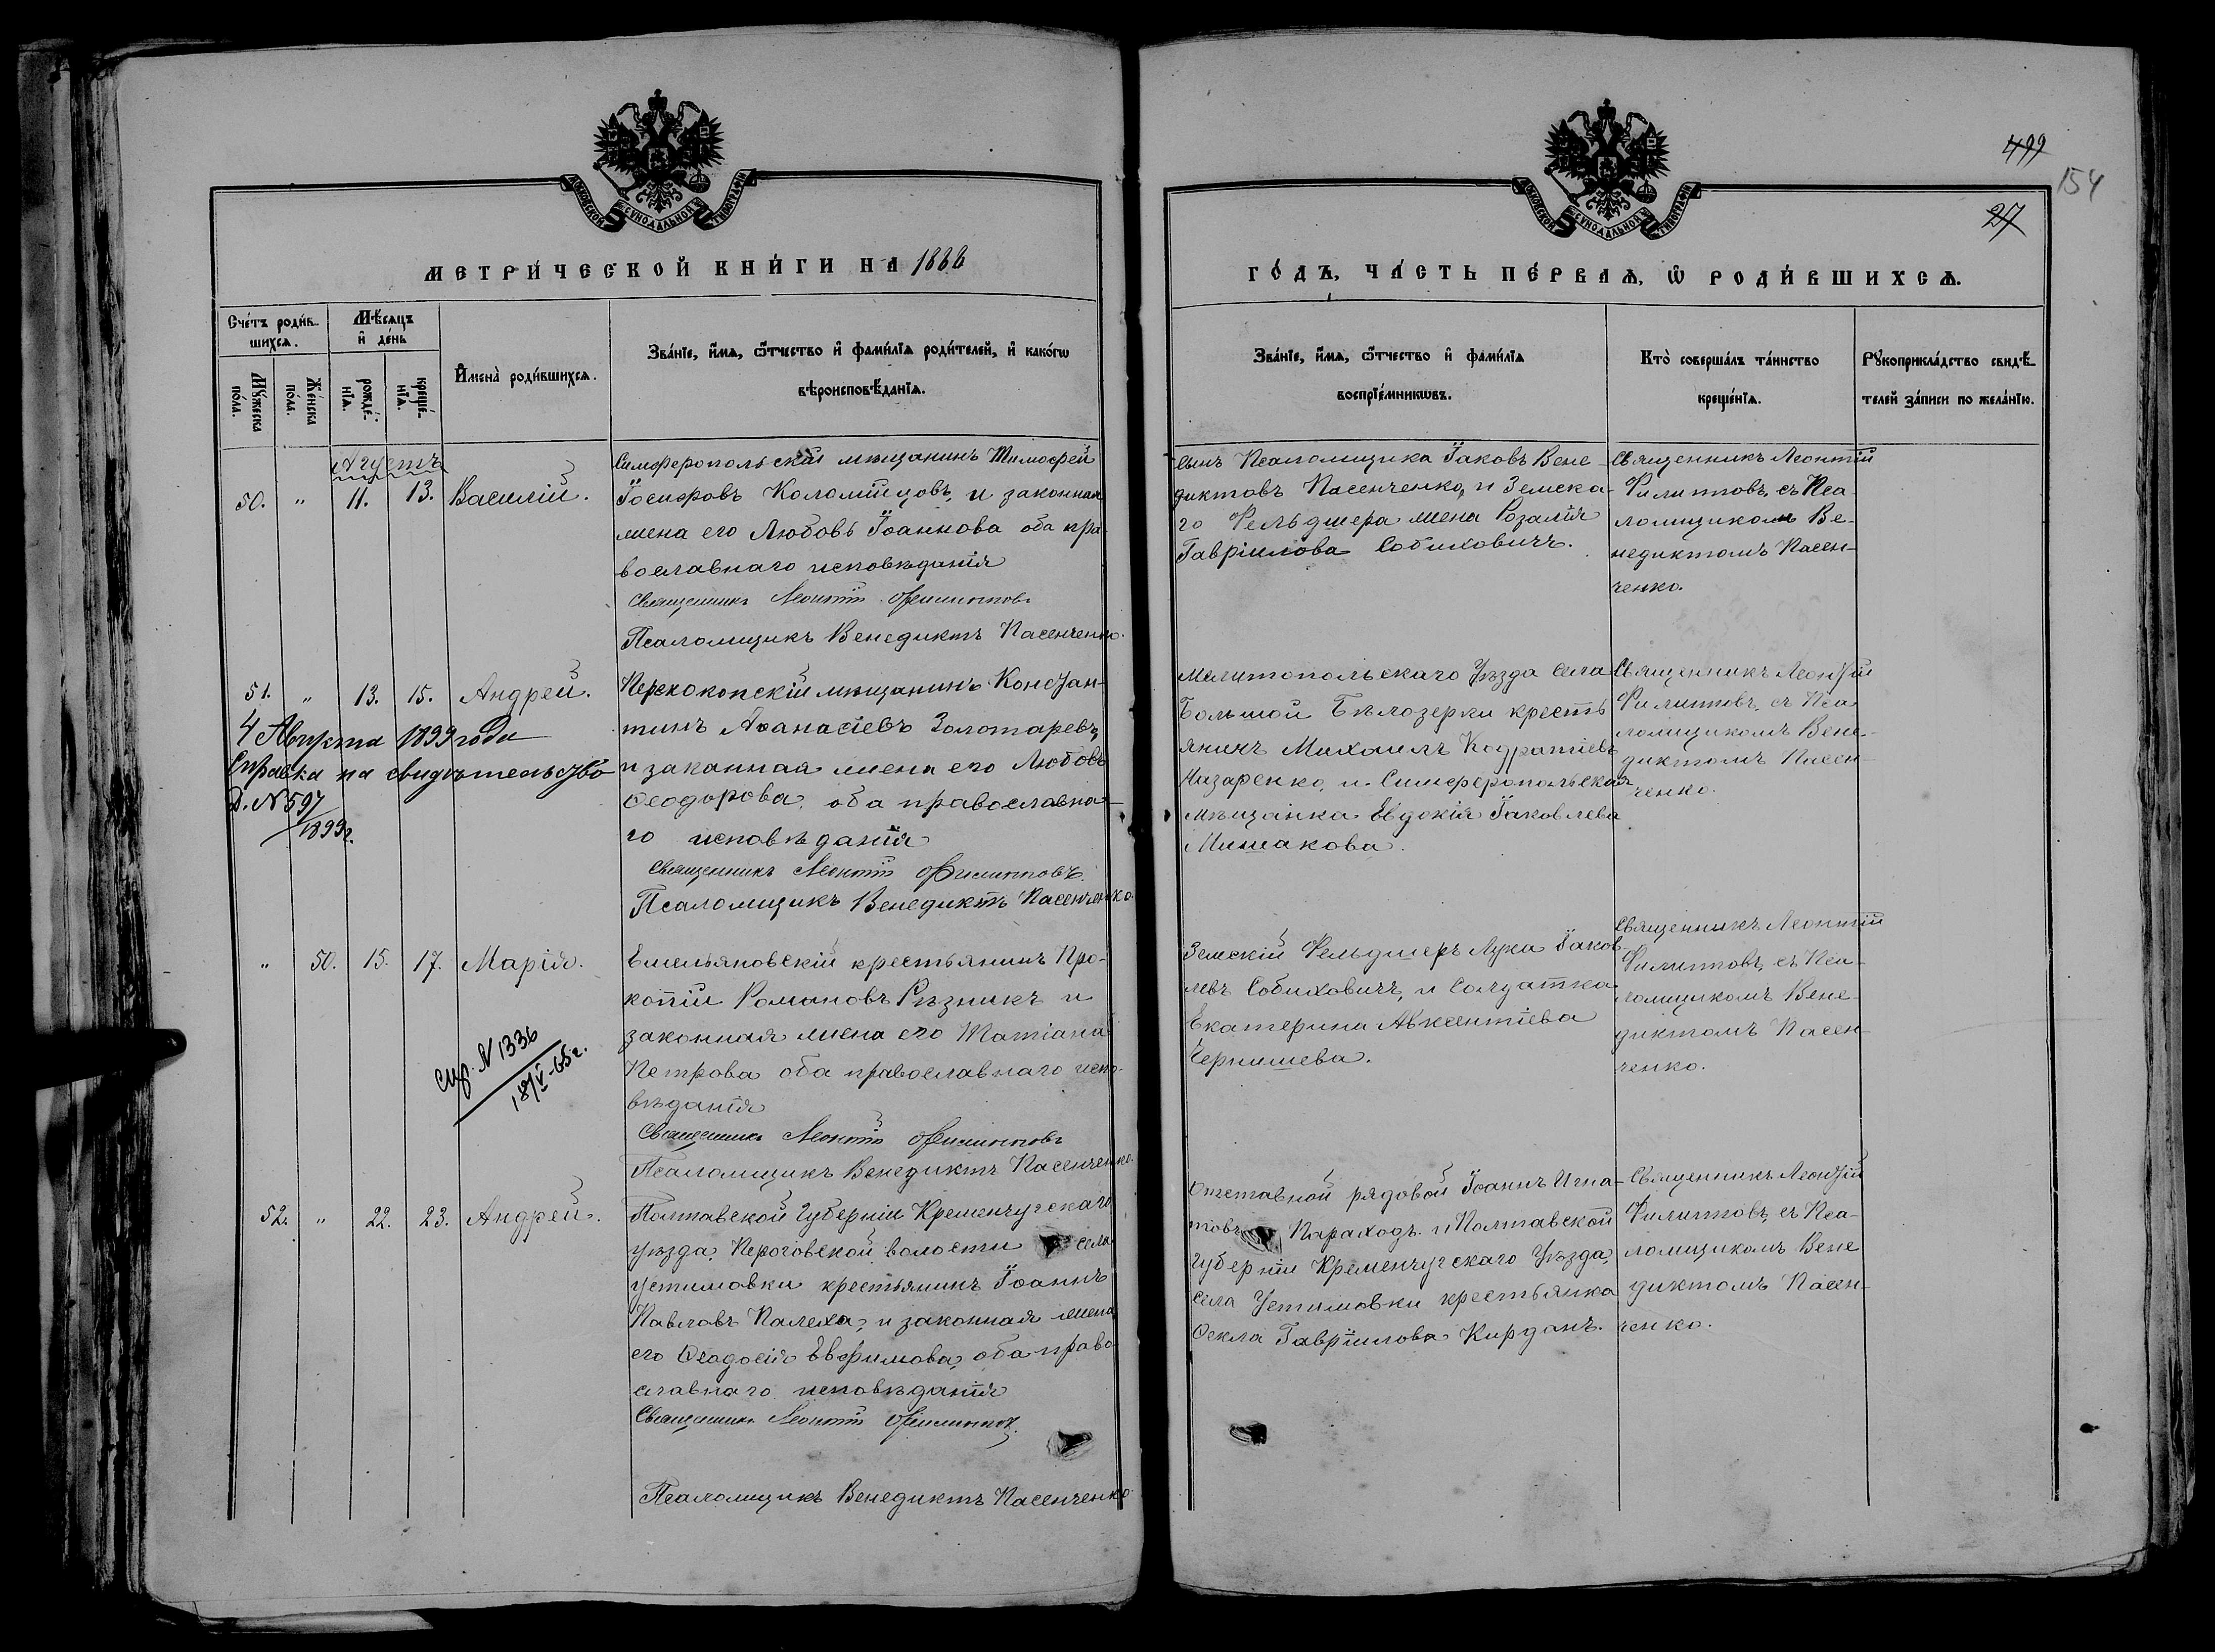 499
154
27
МОСКОВСКОЙ СѴНОДАЛЬНОЙ ТИПОГРАФІИ
МОСКОВСКОЙ СѴНОДАЛЬНОЙ ТИПОГРАФІИ
МЕТРИ́ЧЕСКОЙ КНИ́ГИ НА 1886
ГО́ДЪ, ЧА́СТЬ ПЕ́РВАѦ, Ѡ҆ РОДИ́ВШИХСѦ.
Сче́тъ роди́в-
шихсѧ.
Мѣ́сѧцъ
и҆ де́нь
Мꙋ́жеска
по́ла.
Же́нска
по́ла.
рожде́-
нїѧ.
креще́-
нїѧ.
И҆мена̀ роди́вшихсѧ.
Зва́нїе, и҆́мѧ, ѻ҆́тчество и҆ фами́лїѧ роди́телей, и҆ како́гѡ
вѣроисповѣ́данїѧ.
Зва́нїе, и҆́мѧ, ѻ҆́тчество и҆ фами́лїѧ
воспрїе́мникѡвъ.
Кто̀ соверша́лъ та́инство
креще́нїѧ.
Рꙋкоприкла́дство свидѣ́-
телей за́писи по жела́нїю.
Августъ
50. " 11. 13. Василій.
Симферопольскій мѣщанинъ Тимофей
Іосифовъ Коломійцовъ, и законная
жена его Любовь Іоаннова оба пра
вославнаго исповѣданія
Священникъ Леонтій Филипповъ
Псаломщикъ Венедиктъ Пасенченко.
сынъ Псаломщика Іаковъ Вене-
диктовъ Пасенченко, и Земска-
го Фельдшера жена Розалія
Гавріилова Собиховичъ.
Священникъ Леонтій
Филипповъ, съ Пса-
ломщикомъ Ве-
недиктомъ Пасен-
ченко.
51. " 13. 15. Андрей.
4 Августа 1899 года
Справка на свидѣтельство
Д. № 597
1899 г.
Перекопскій мѣщанинъ Констан-
тинъ Аѳанасіевъ Золотаревъ,
и законная жена его Любовь
Ѳеодорова, оба православна-
го исповѣданія
Священникъ Леонтій Филипповъ.
Псаломщикъ Венедиктъ Пасенченко.
Мелитопольскаго Уѣзда села
Большой Бѣлозерки кресть
янинъ Михаилъ Кодратіевъ
Назаренко, и Симферопольская
мѣщанка Евдокія Іаковлева
Мишакова.
Священникъ Леонтій
Филипповъ, съ Пса
ломщикомъ Вене-
диктомъ Пасен-
ченко.
" 50. 15. 17. Марія.
спр. № 1336
18/V-65 г.
Емельяновскій крестьянинъ Про-
копій Романовъ Рѣзникъ и
законная жена его Татіана
Петрова оба православнаго испо-
вѣданія
Священникъ Леонтій Филипповъ
Псаломщикъ Венедиктъ Пасенченко.
Земскій Фельдшеръ Лука Іаков-
левъ Собиховичъ, и Солдатка
Екатерина Авксентіева
Чернишева.
Священникъ Леонтій
Филипповъ, съ Пса-
ломщикомъ Вене-
диктомъ Пасен-
ченко.
52. " 22. 23. Андрей.
Полтавской Губерніи Кременчугскаго
уѣзда, Пероговской волости села
устимовки крестьянинъ Іоаннъ
Павловъ Палеха, и законная жена
его Ѳеодосія Евфимова, оба право
славнаго исповѣданія
Священникъ Леонтій Филипповъ.
Псаломщикъ Венедиктъ Пасенченко.
Отставной рядовой Іоаннъ Игна-
товъ Параходъ. и Полтавской
Губерніи Кременчугскаго Уѣзда,
села Устимовки крестьянка
Ѳекла Гавріилова Кирданъ.
Священникъ Леонтій
Филипповъ, съ Пса-
ломщикомъ Вене
диктомъ Пасен-
ченко.